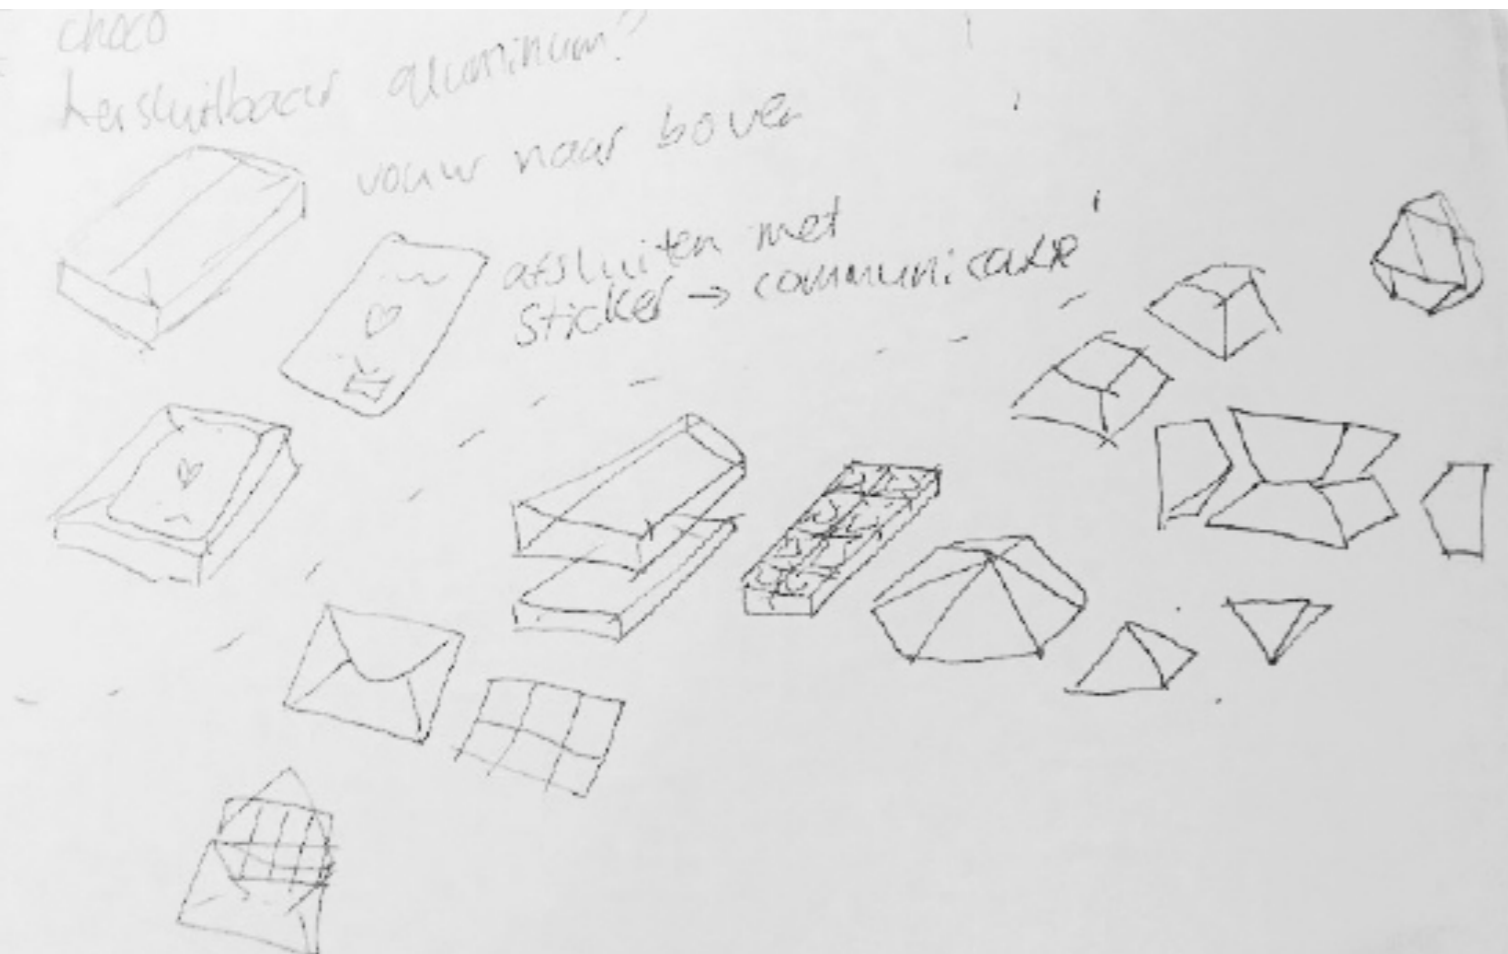 choco
hersluitbaar aluminium?
vouw naar boven
afsluiten met
sticker → communicatie